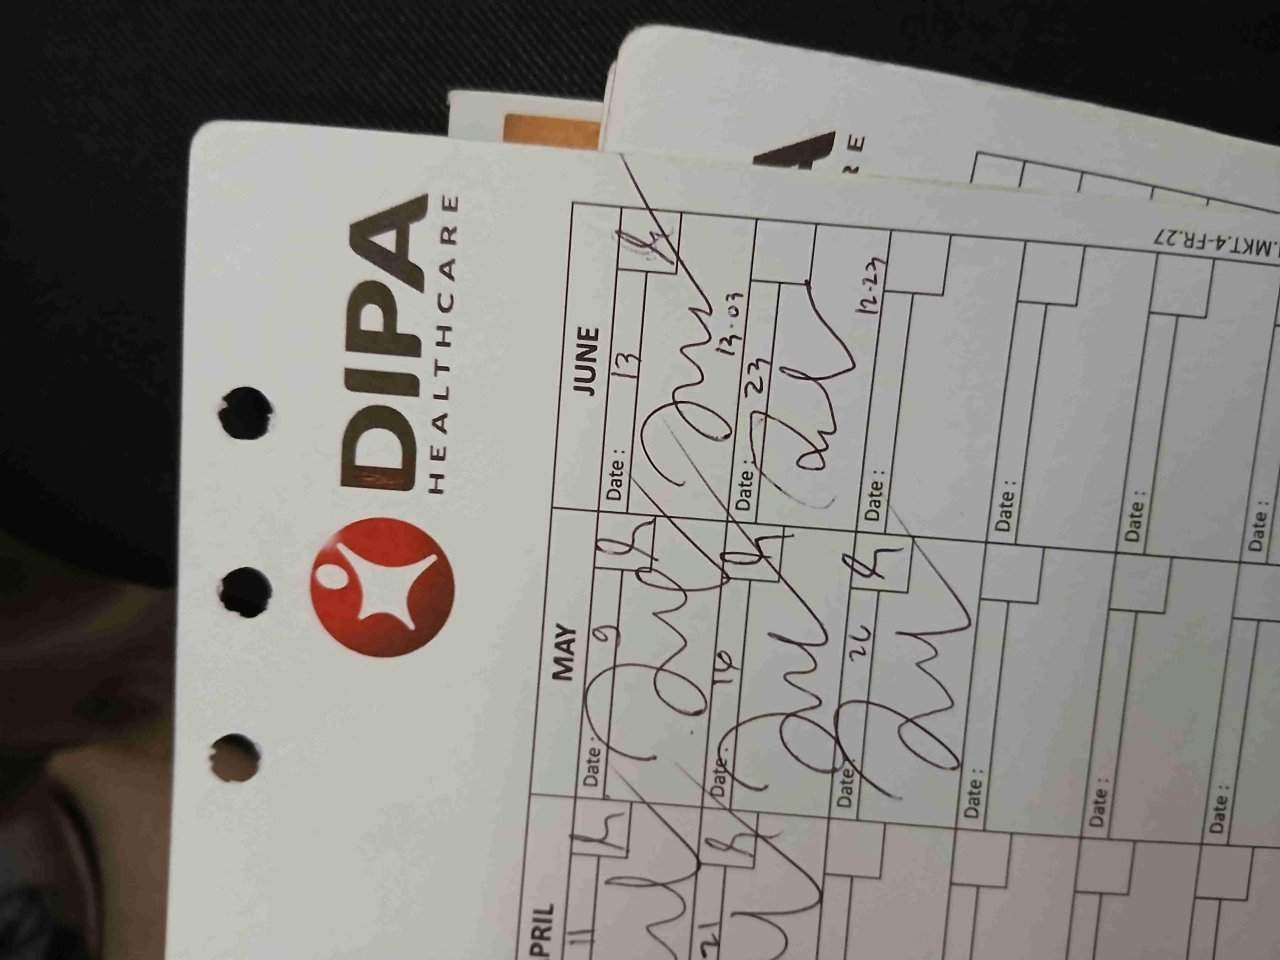 DIPA
HEALTHCARE
RE
PRIL
MAY
JUNE
11
Date : 9
Date : 13
13.03
21
Date : 16
Date : 23
12.23
Date : 26
Date :
Date :
Date :
Date :
Date :
Date :
Date :
.MKT.4-FR.27